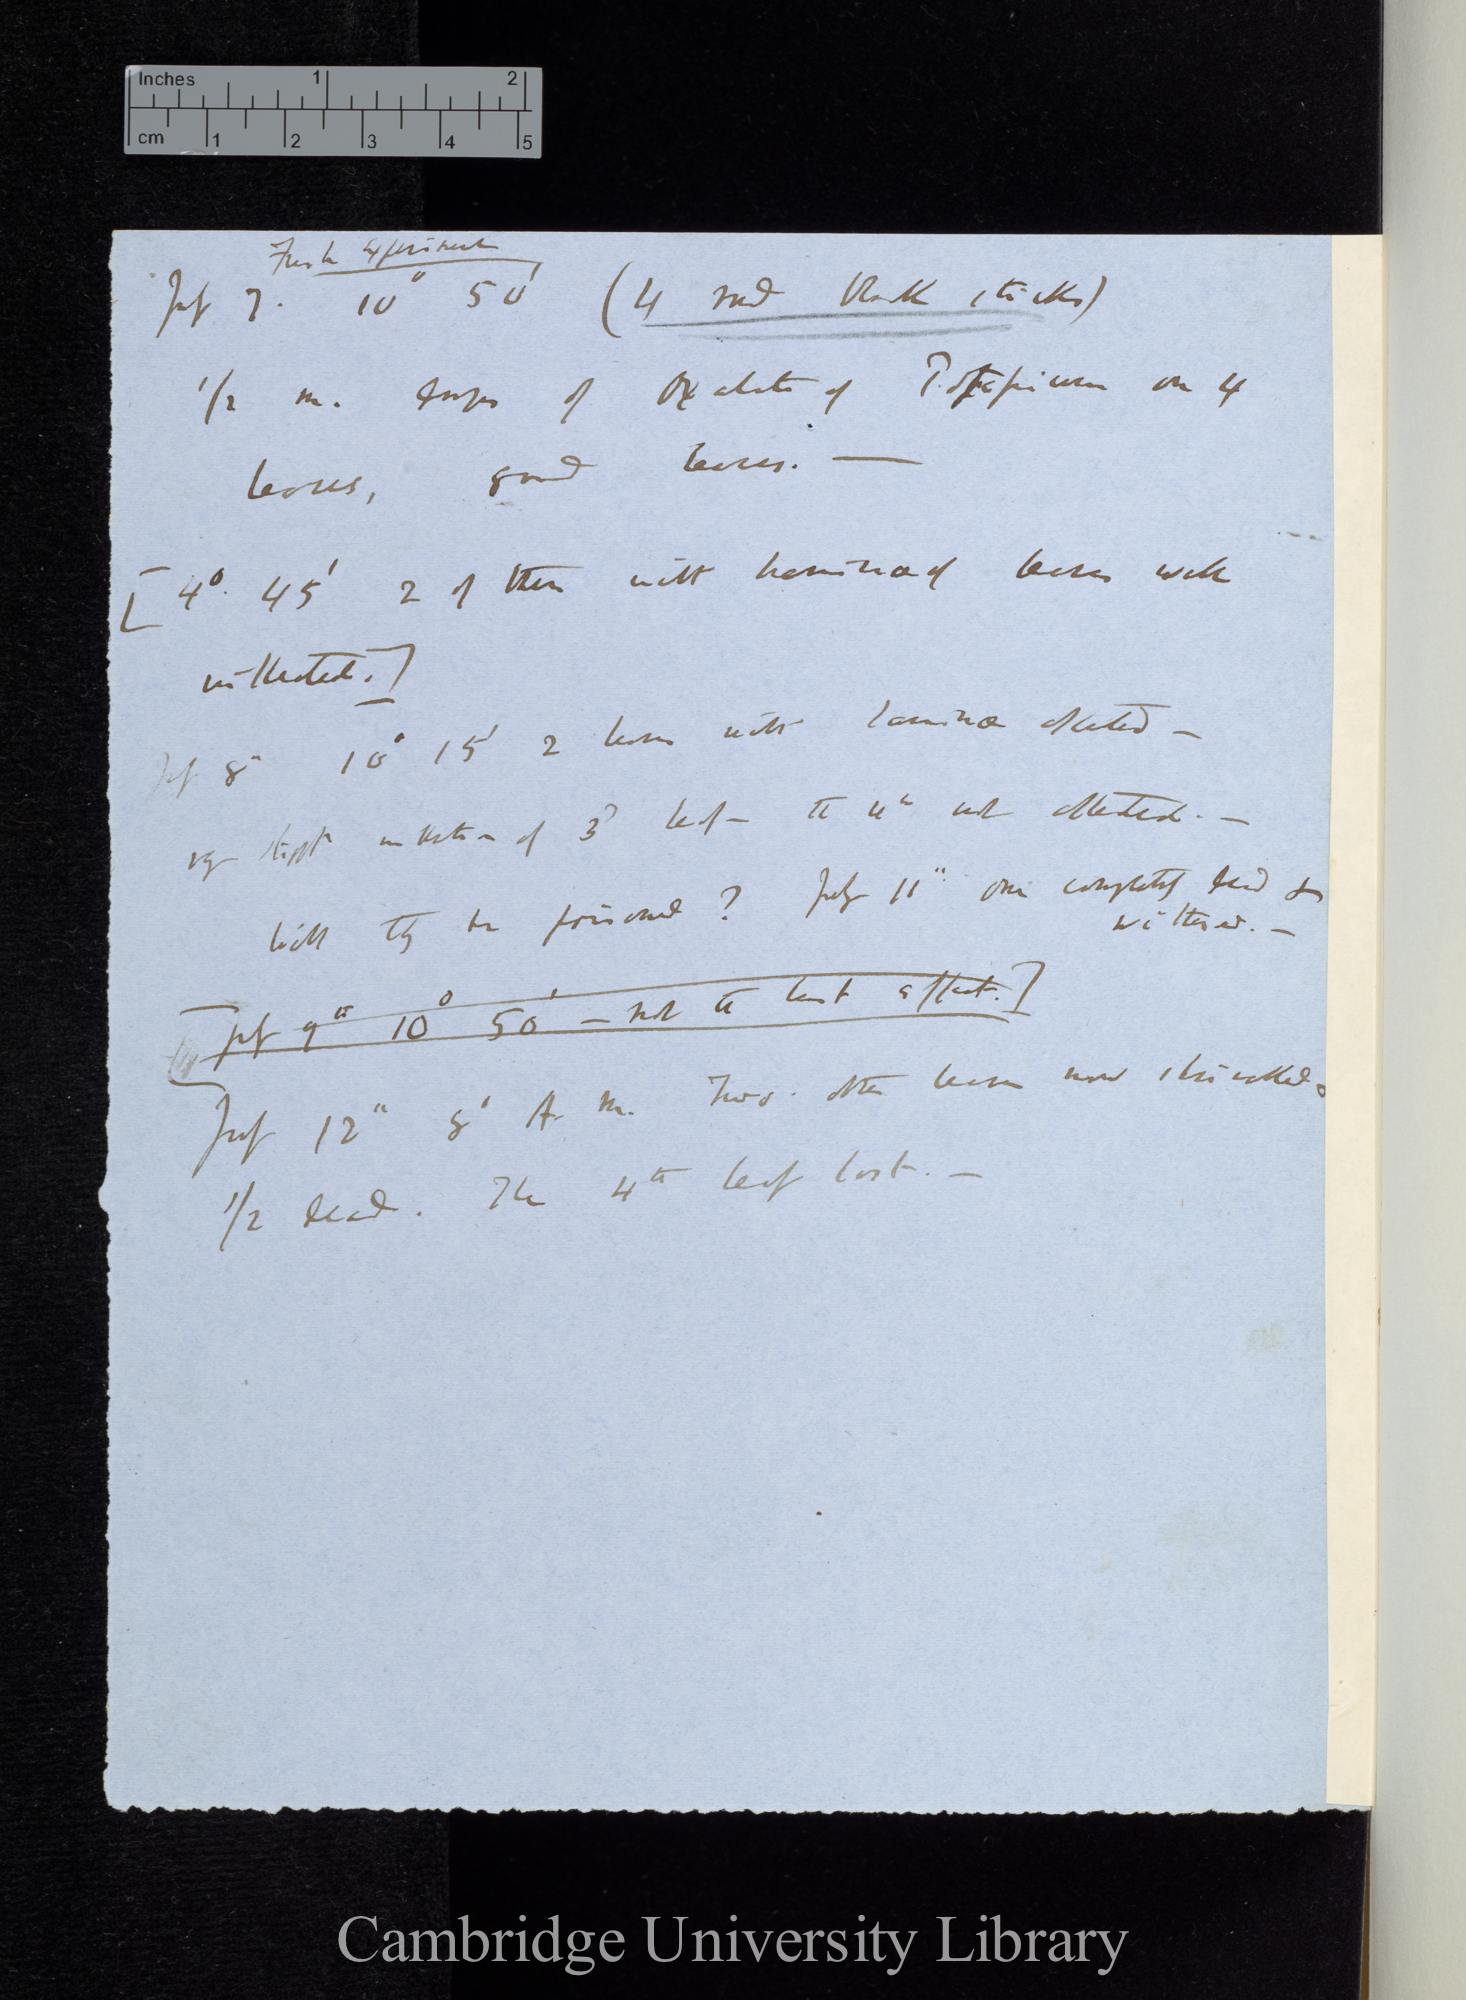 Inches 1 2
cm 1 2 3 4 5
Fresh Experiment
July 7. 10° 50' (4 red black sticks)
1/2 m. drops of Oxalate of Potassium on 4
leaves, good leaves. —
[4°. 45' 2 of them with laminæ of leaves well
inflected.]
July 8th 10° 15' 2 leaves with laminæ affected —
very slight inflection of 3d leaf — the 4th not affected. —
Will they be poisoned? July 11th one completely dead &
withered. —
[July 9th 10° 50' — not the least affect.]
July 12th 8° A. m. Two other leaves now shrivelled &
1/2 dead. The 4th leaf lost. —
Cambridge University Library